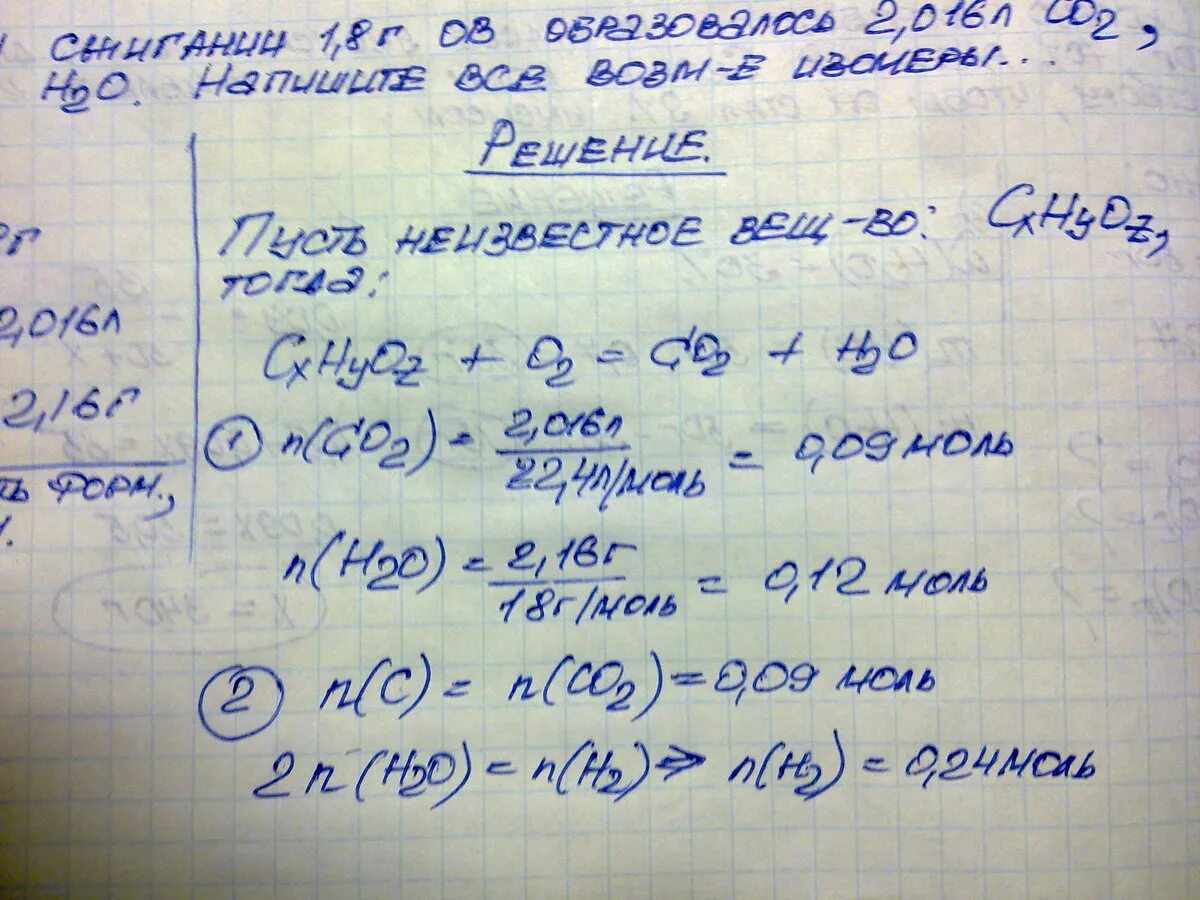 сжигании 1,8 г ОВ образовалось 2,016 л CO2,
H2O. Напишите все возм-е изомеры...
Решение.
Пусть неизвестное вещ-во: CxHyOz,
тогда:
г
2,016л
2,16г
ть форм.,
CxHyOz + O2 = CO2 + H2O
1 n(CO2) = 2,016л / 22,4л/моль = 0,09 моль
n(H2O) = 2,16г / 18г/моль = 0,12 моль
2 n(C) = n(CO2) = 0,09 моль
2n(H2O) = n(H2) => n(H2) = 0,24 моль
x = 340 г